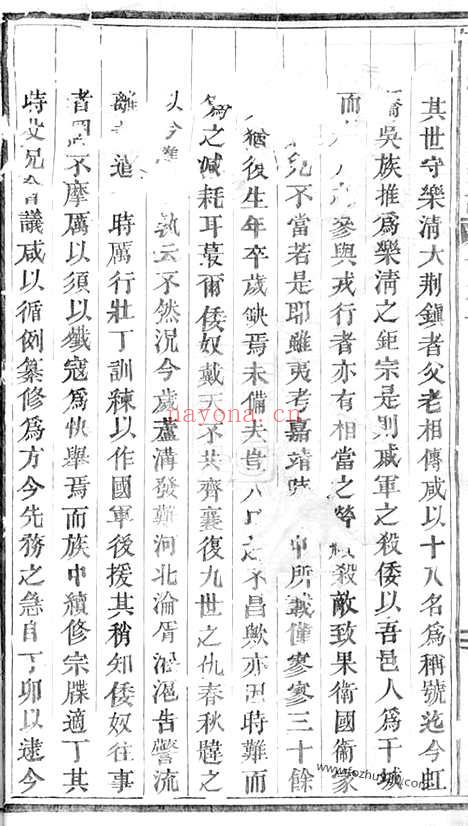 其世守樂清大荆鎭者父老相傳咸以十八名爲稱號迄今虹
橋吳族推爲樂淸之鉅宗是則戚軍之殺倭以吾邑人爲干城
而 參與戎行者亦有相當之勞績殺敵致果衛國衛家
兒不當若是耶雖夷考嘉靖時 中所載僅寥寥三十餘
猶復生年卒歲缺焉未備夫豈人口之不昌歟亦丑時難而
爲之減耗耳蕞爾倭奴戴天不共齊襄復九世之仇春秋韙之
以今 孰云不然況今歲蘆溝發難河北淪胥滬淞告警流
離 道 時厲行壯丁訓練以作國軍後援其稍知倭奴往事
者 不摩厲以須以殲寇爲快舉焉而族中續修宗牒適丁其
時父兄會議咸以循例纂修爲方今先務之急自丁卯以逮今
nayona.cn
www.tozhu